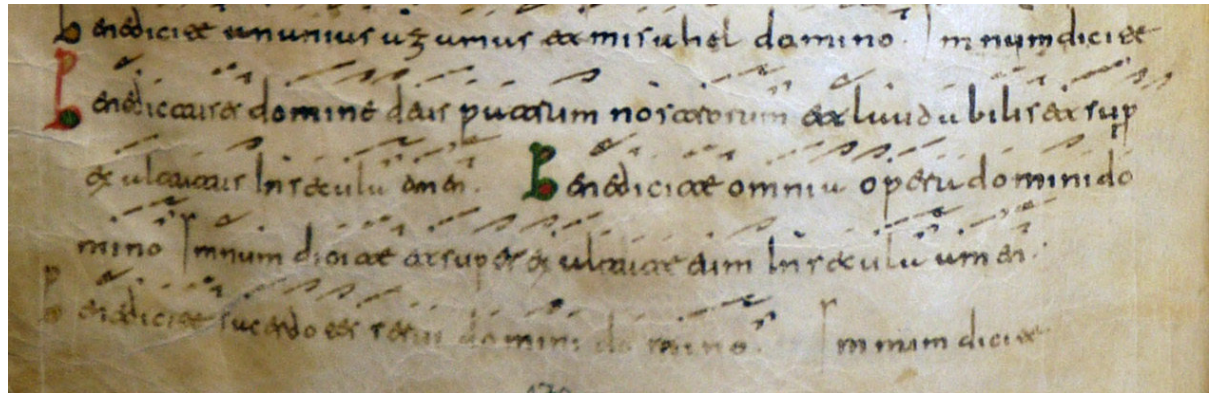 Benedicite ananias azarias et misahel domino. Imnum dicite
Benedictus es domine deus patrum nostrorum et laudabilis et sup
exaltatus In secula amen. Benedicite omnia opera domini do
mino Imnum dicite et superexaltate eum In secula amen.
Benedicite sacerdotes servi domini domino. Imnum dicite